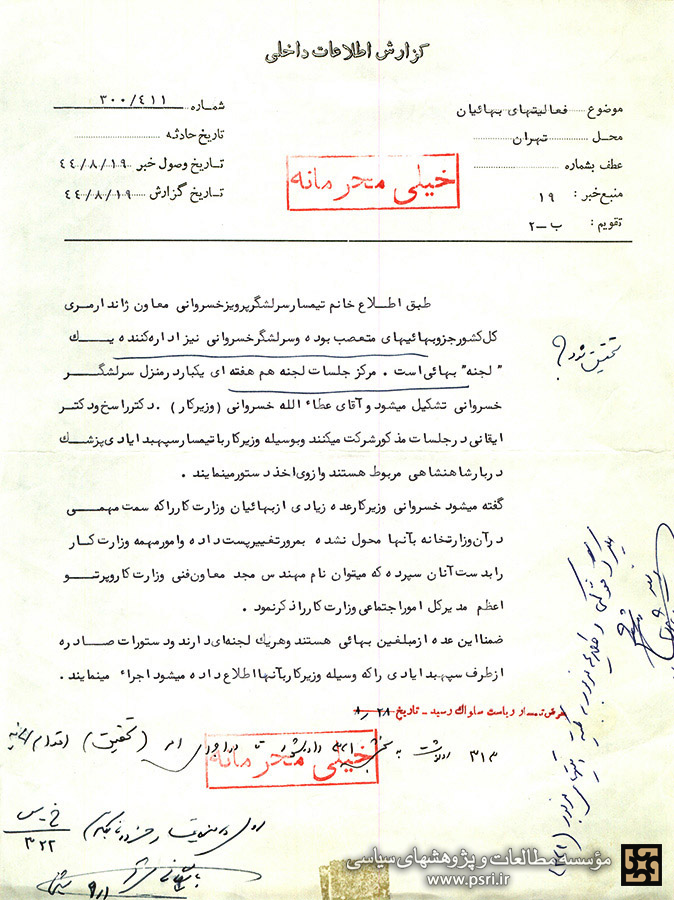 گزارش اطلاعات داخلی
موضوع فعالیتهای بهائیان
محل تهران
عطف بشماره
منبع خبر : ۱۹
تقویم : ب ــ ۲
شماره ۳۰۰/۴۱۱
تاریخ حادثه
تاریخ وصول خبر ۴۴/۸/۱۹
تاریخ گزارش ۴۴/۸/۱۹
خیلی محرمانه
طبق اطلاع خانم تیمسار سرلشگر پرویز خسروانی معاون ژاندارمری
کل کشور جزو بهائیهای متعصب بوده و سرلشگر خسروانی نیز اداره کننده یک
" لجنه" بهائی است . مرکز جلسات لجنه هم هفته ای یکبار در منزل سرلشگر
خسروانی تشکیل میشود و آقای عطاء الله خسروانی (وزیر کار) . دکتر راسخ و دکتر
ایقانی در جلسات مذکور شرکت میکنند و بوسیله وزیر کار با تیمسار سپهبد ایادی پزشک
دربار شاهنشاهی مربوط هستند و از وی اخذ دستور مینمایند .
گفته میشود خسروانی وزیر کار عده زیادی از بهائیان وزارت کار را که سمت مهمی
در آن وزارتخانه بآنها محول نشده بمرور تغییر پست داده و امور مهمه وزارت کار
را بدست آنان سپرده که میتوان نام مهندس مجد معاون فنی وزارت کار و پرتو
اعظم مدیر کل امور اجتماعی وزارت کار را ذکر نمود .
ضمنا این عده از مبلغین بهائی هستند و هر یک لجنه ای دارند و دستورات صادره
از طرف سپهبد ایادی را که وسیله وزیر کار بآنها اطلاع داده میشود اجراء مینمایند .
بعرض تیمسار ریاست ساواک رسید ــ تاریخ ۲۸ر۸
تحقیق شود ؟
خیلی محرمانه
۳۱۳
(تحقیق)
۳۲۲
مؤسسه مطالعات و پژوهشهای سیاسی
www.psri.ir